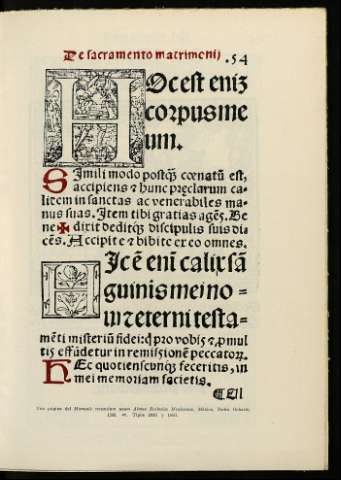 De sacramento matrimonij
.54
HOc est eniz
corpus me
um.
SImili modo postq̃ cœnatũ est,
accipiens ⁊ hunc pręclarum ca-
licem in sanctas ac venerabiles ma-
nus suas. Item tibi gratias agẽs. Be
ne✠dixit deditq̃ discipulis suis di-
cẽs. Accipite ⁊ bibite ex eo omnes.
HIc ẽ enĩ calix sã
guinis mei no-
ui ⁊ eterni testa-
mẽti misteriũ fidei: q̃ pro vobis ⁊ p̱ mul
tis effũdetur in remissionẽ peccatoꝝ.
HEc quotienscunq̃ feceritis, in
mei memoriam facietis.
Una página del Manuale secundum usum Almae Ecclesiae Mexicanae, México, Pedro Ocharte,